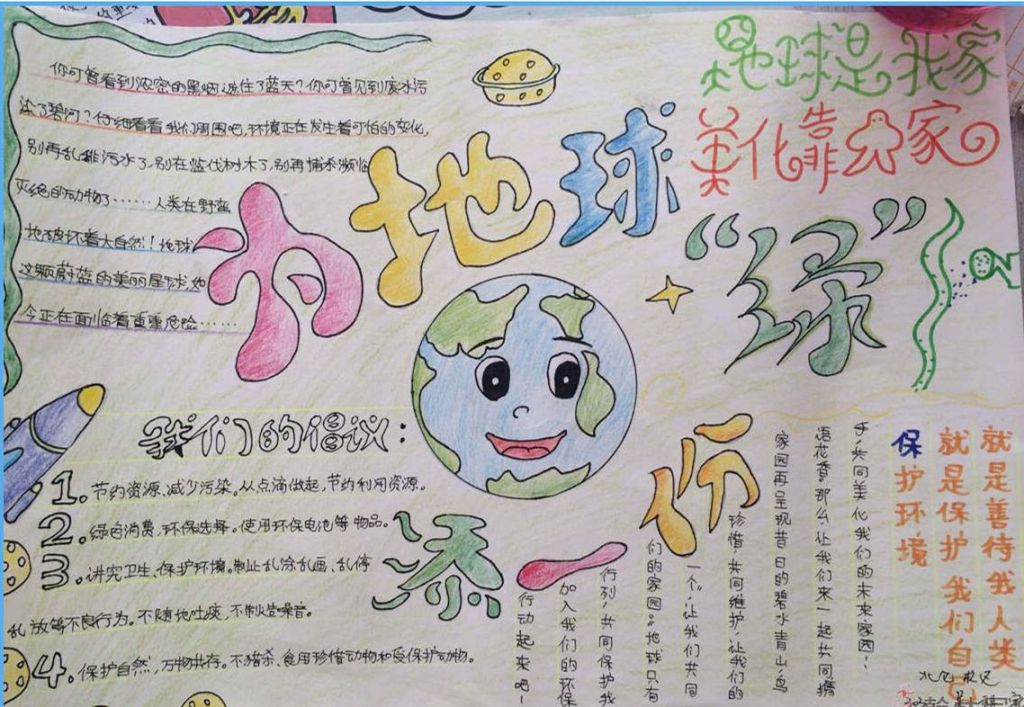 你可曾看到浓密的黑烟遮住了蓝天?你可曾见到废水污
染了碧河?仔细看看我们周围吧,环境正在发生着可怕的变化,
别再乱排污水了,别在滥伐树木了,别再捕杀濒临
灭绝的动物了……人类在野蛮
地破坏着大自然!地球
这颗蔚蓝的美丽星球如
今正在面临着重重危险……
地球是我家
美化靠大家
为地球
添一份
“绿”
我们的倡议:
1.节约资源、减少污染。从点滴做起,节约利用资源。
2.绿色消费,环保选择。使用环保电池等物品。
3.讲究卫生、保护环境。制止乱涂乱画、乱停
乱放等不良行为。不随地吐痰,不制造噪音。
4.保护自然,万物共存。不猎杀、食用珍惜动物和受保护动物。
保护环境
就是保护我们自己
就是善待我人类
行动起来吧!
加入我们的环保
行列,共同保护我
们的家园。地球只有
一个,让我们共同
珍惜共同维护,让我们的
家园再呈现昔日的碧水青山,鸟
语花香。那么让我们来一起共同携
手,共同美化我们的未来家园!